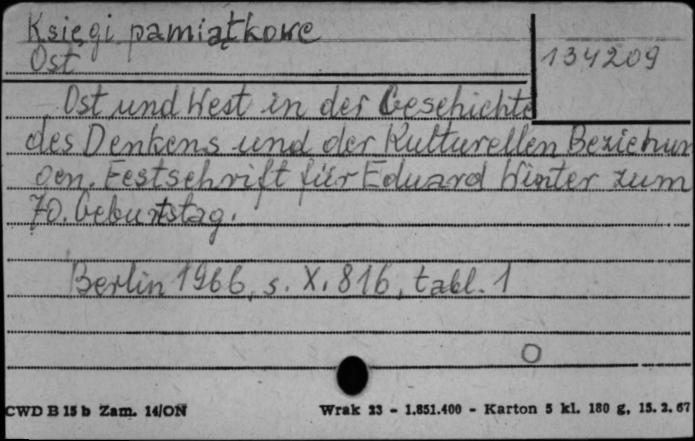 Księgi pamiątkowe
Ost
134209
Ost und West in der Geschichte
des Denkens und der Kulturellen Beziehun
gen. Festschrift für Eduard Winter zum
70. Geburtstag.
Berlin 1966, s. X, 816, tabl. 1
CWD B 15 b Zam. 14/ON
Wrak 23 - 1.851.400 - Karton 5 kl. 180 g, 15. 2. 67